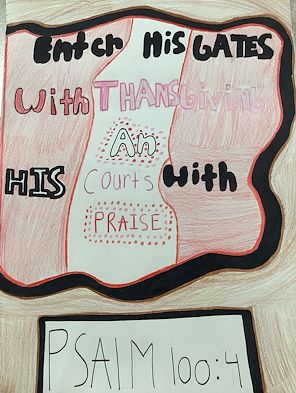 Enter His GATES
With THANSGIVING
An
HIS Courts With
PRAISE
PSALM 100:4